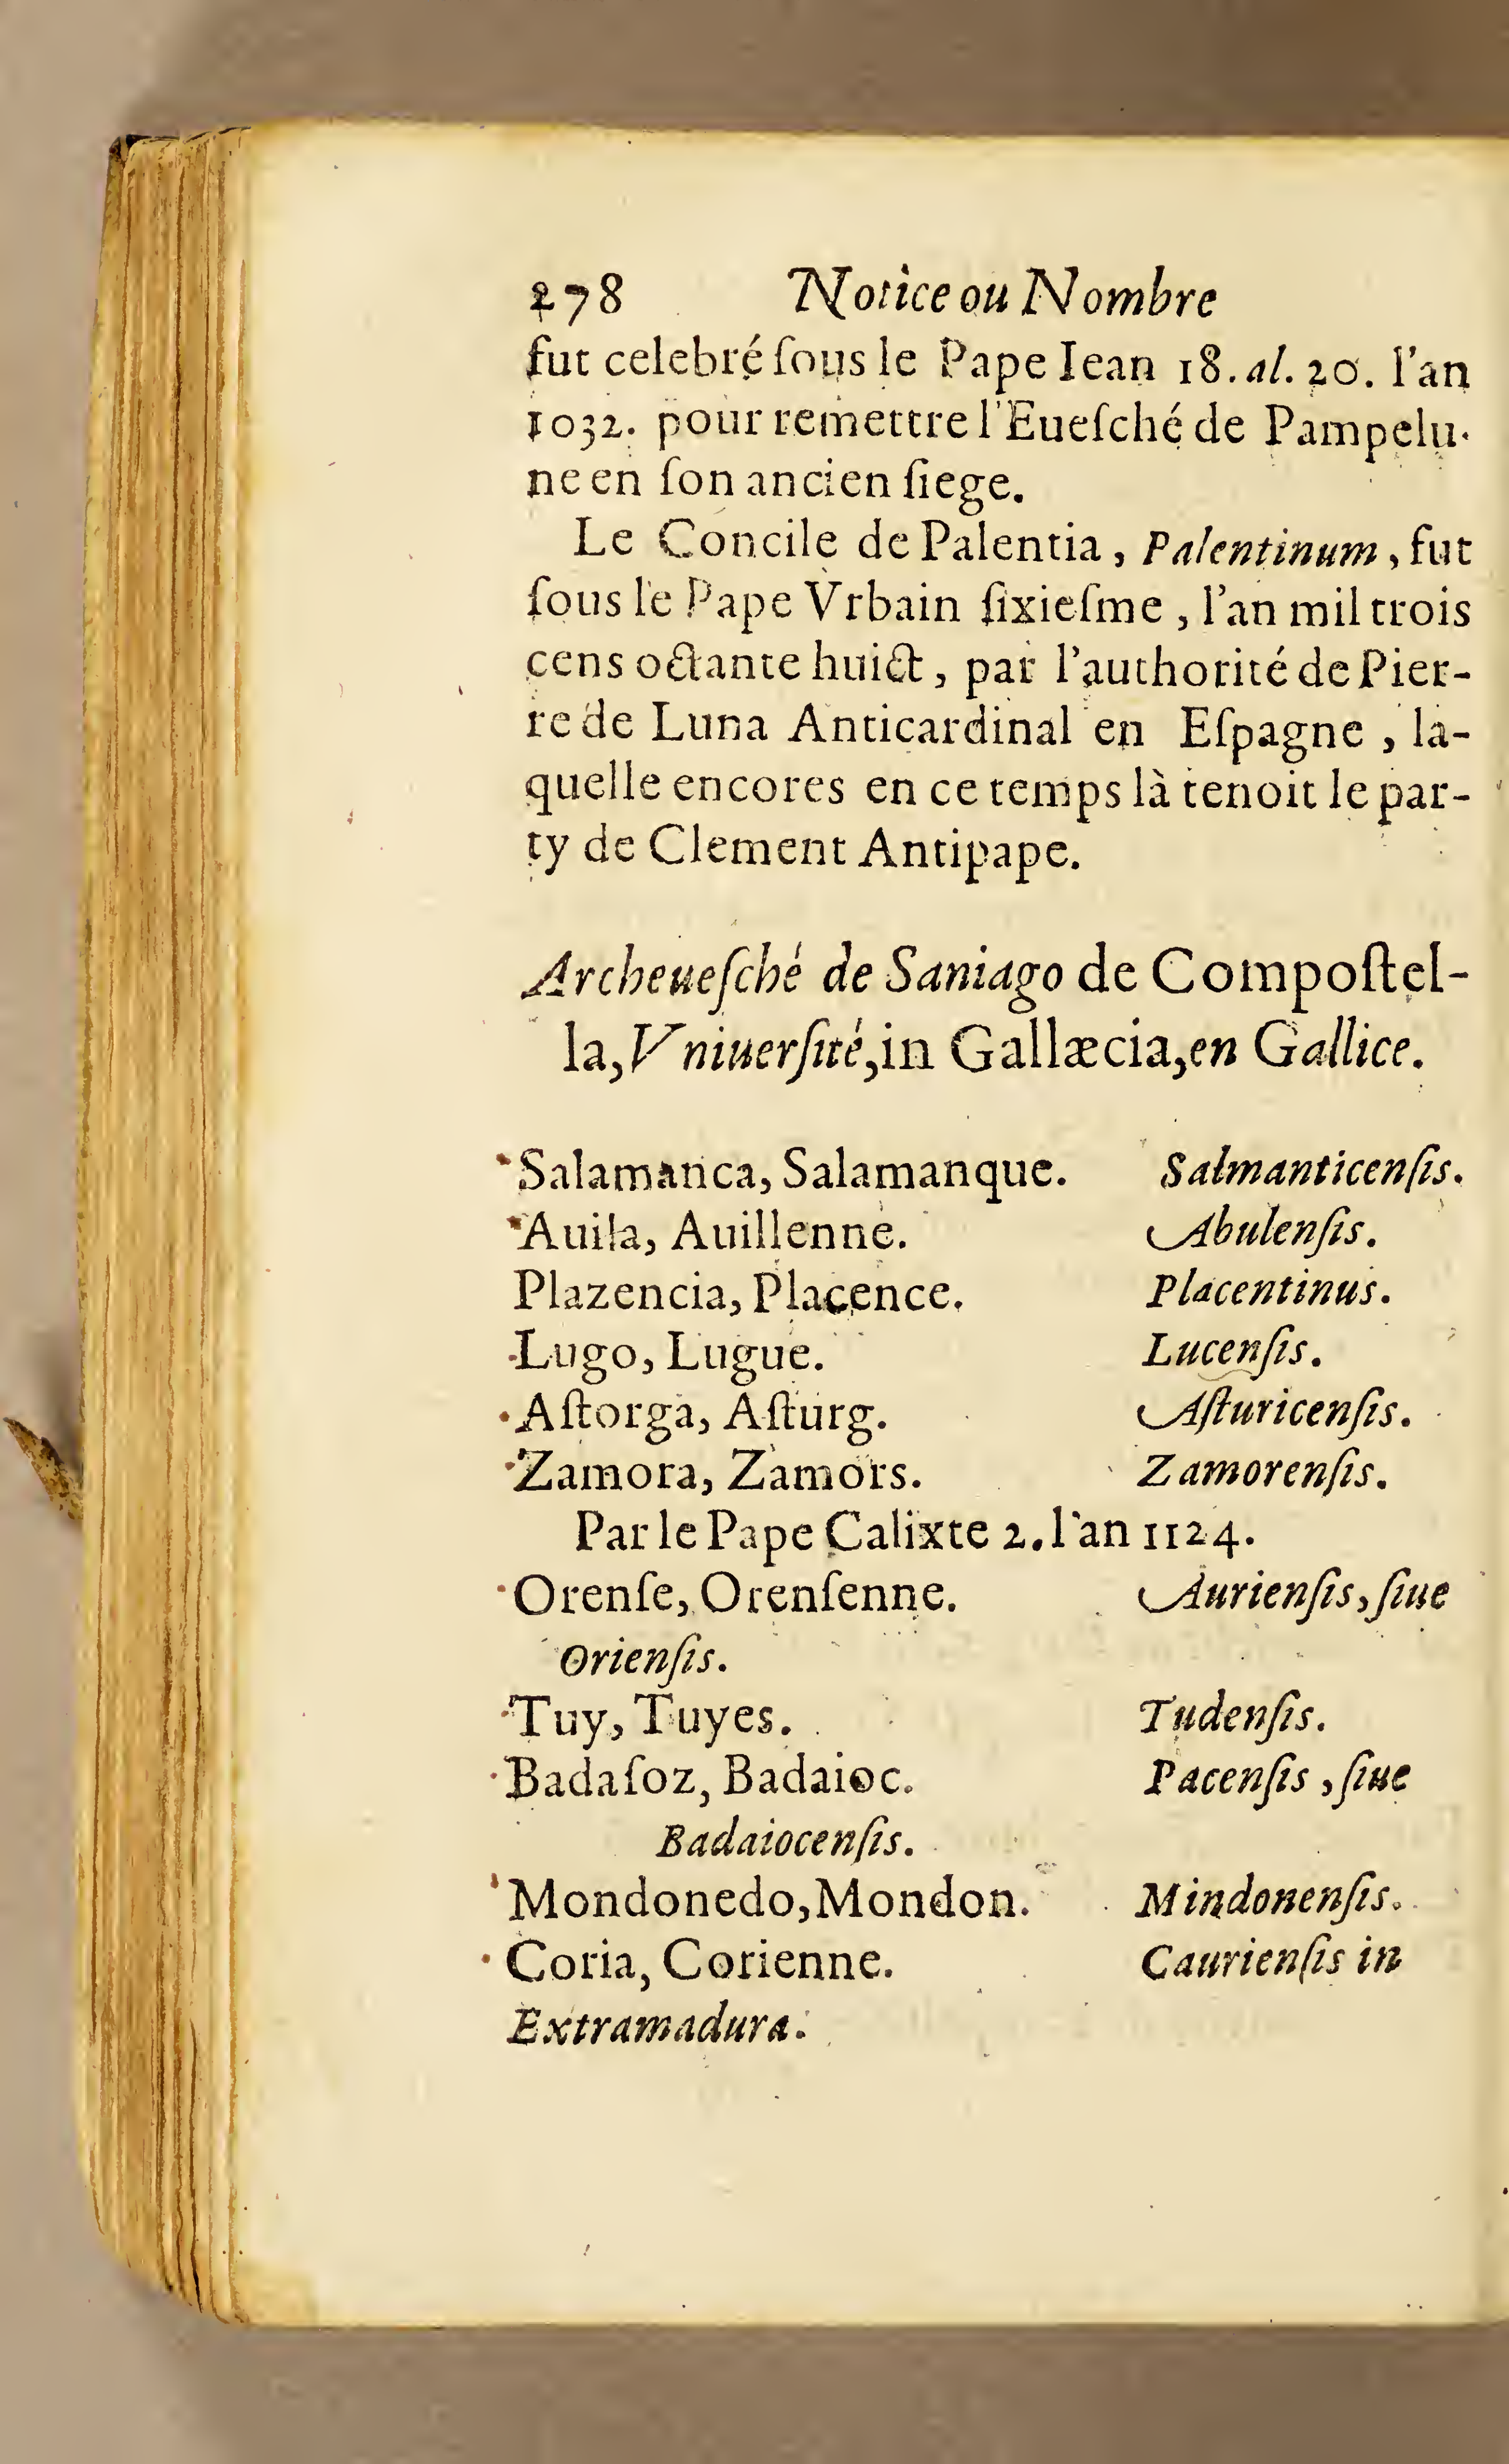 278 Notice ou Nombre
fut celebré ſous le Pape Iean 18. al. 20. l'an
1032. pour remettre l'Eueſché de Pampelu-
ne en ſon ancien ſiege.
Le Concile de Palentia, Palentinum, fut
ſous le Pape Vrbain ſixieſme, l'an mil trois
cens octante huict, par l'authorité de Pier-
re de Luna Anticardinal en Eſpagne, la-
quelle encores en ce temps là tenoit le par-
ty de Clement Antipape.
Archeueſché de Saniago de Compoſtel-
la, Vniuerſité, in Gallæcia, en Gallice.
Salamanca, Salamanque. Salmanticenſis.
Auila, Auillenne. Abulenſis.
Plazencia, Placence. Placentinus.
Lugo, Lugue. Lucenſis.
Aſtorga, Aſturg. Aſturicenſis.
Zamora, Zamors. Zamorenſis.
Par le Pape Calixte 2. l'an 1124.
Orenſe, Orenſenne. Aurienſis, ſiue
Orienſis.
Tuy, Tuyes. Tudenſis.
Badaſoz, Badaioc. Pacenſis, ſiue
Badaiocenſis.
Mondonedo, Mondon. Mindonenſis.
Coria, Corienne. Caurienſis in
Extramadura.